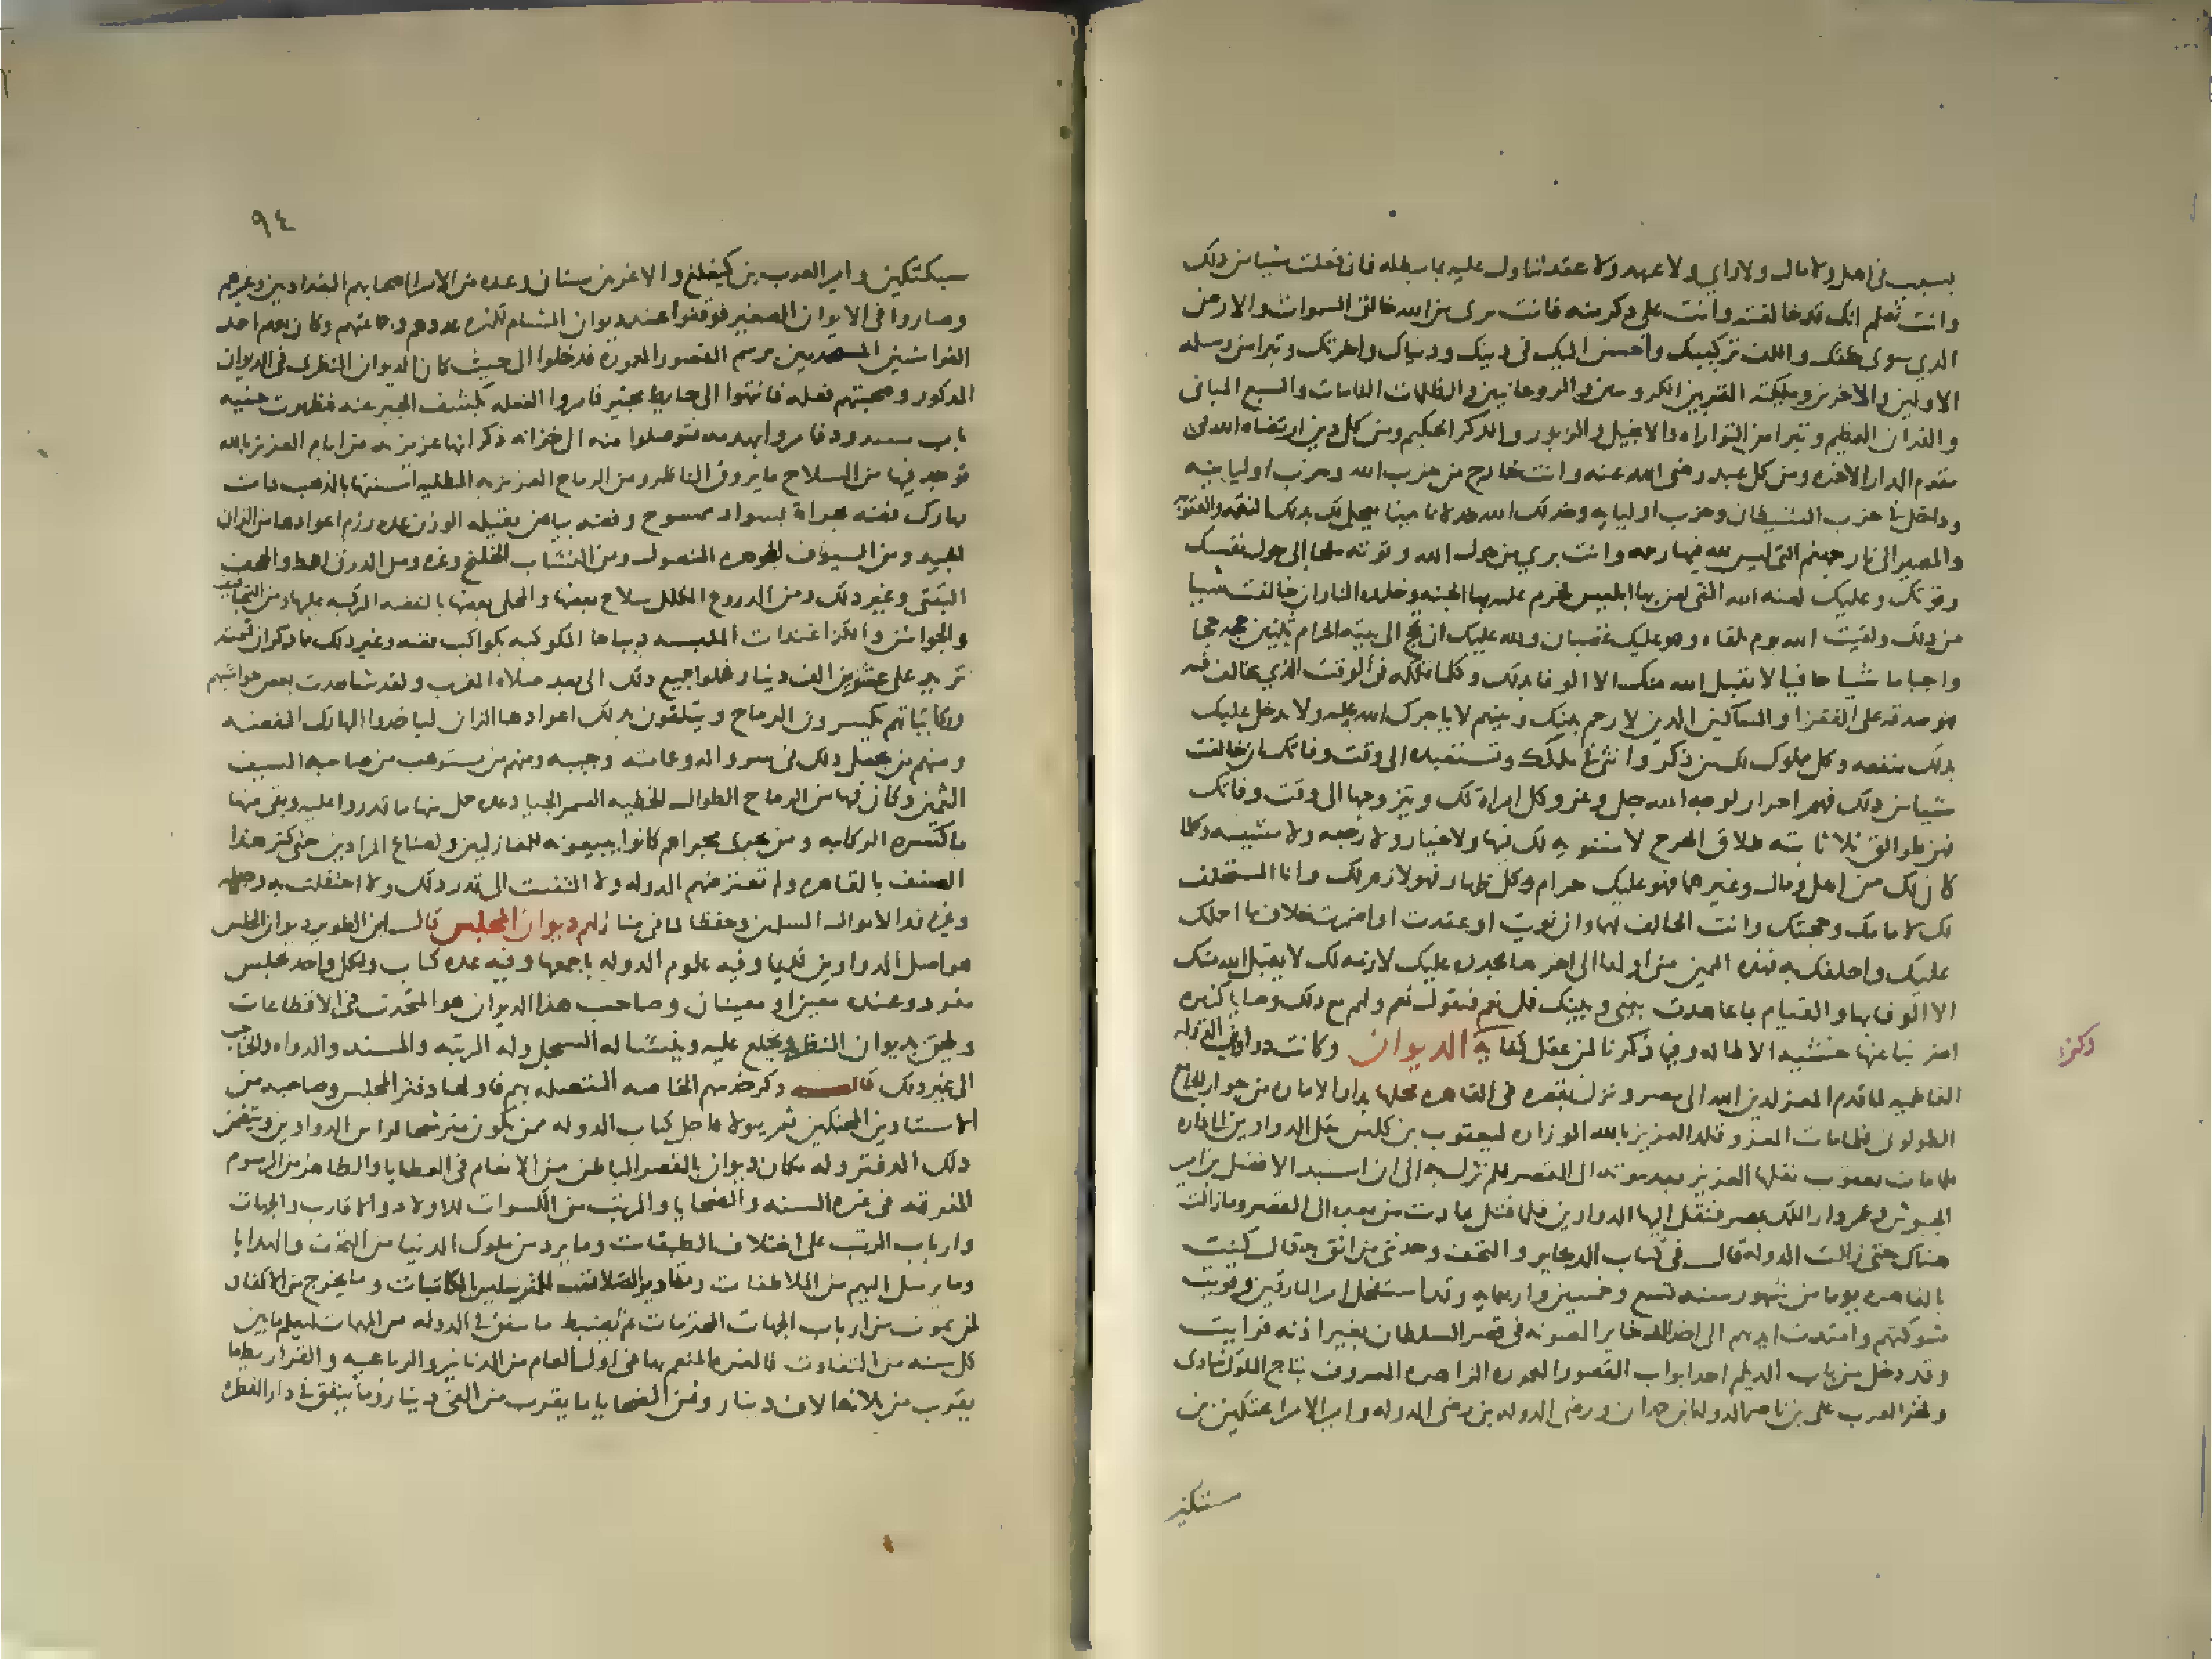 بسبب في اهل ولا مال ولا راي ولا عهد ولا عقد تتاول عليه بما يبطله فان فعلت شيا من ذلك
وانت تعلم انك قد خالفته وانت على ذكر منه فانت بري من الله خالق السموات والارض
الذي سوى خلقك والف تركيبك واحسن اليك في دينك ودنياك واخرتك وتبرا من رسله
الاولين والاخرين وملايكته المقربين الكروبيين والروحانيين والكلمات التامات والسبع المثاني
والقران العظيم وتبرا من التوراه والانجيل والزبور والذكر الحكيم ومن كل دين ارتضاه الله في
مقدم الدار الاخره ومن كل عبد رضى الله عنه وانت خارج من حزب الله وحزب اوليايه
وداخل في حزب الشيطان وحزب اوليايه وخذلك الله خذلانا مبينا يعجل لك بذلك النقمه والعقوبه
والمصير الى نار جهنم التي ليس لله فيها رحمه وانت بري من حول الله وقوته ملجا الى حول نفسك
وقوتك وعليك لعنه الله التي لعن بها ابليس فحرم عليه بها الجنه وخلده النار ان خالفت شيا
من ذلك ولقيت الله يوم تلقاه وهو عليك غضبان ولله عليك ان تحج الى بيته الحرام ثلثين حجه حجا
واجبا ماشيا حافيا لا يقبل الله منك الا الوفا بذلك وكل ما تملكه في الوقت الذي تخالف فيه
فهو صدقه على الفقرا والمساكين الذين لا رحم بينك وبينهم لا ياجرك الله عليه ولا يدخل عليك
بذلك منفعه وكل مملوك لك من ذكر وانثى في ملكك وتستفيده الى وقت وفاتك ان خالفت
شيا من ذلك فهم احرار لوجه الله جل وعز وكل امراه لك وتتزوجها الى وقت وفاتك
فهن طوالق ثلاثا بته طلاق الحرج لا مثنويه لك فيها ولا خيار ولا رجعه ولا مشييه وكلما
كان لك من اهل ومال وغيرهما فهو عليك حرام وكل ظهار فهو لازم لك وانا المستحلف
لك لامامك وحجتك وانت الحالف لهما وان نويت او عقدت او اضمرت خلاف ما احملك
عليك واحلفك به فهذه اليمين من اولها الى اخرها مجدده عليك لازمه لك لا يقبل الله منك
الا الوفا بها والقيام بما عاهدت بيني وبينك قل نعم فيقول نعم ولهم مع ذلك وصايا كثيره
اضربنا عنها خشيه الاطاله وفيما ذكرنا لمن عقل كفايه الديوان وكانت دواوين الدوله
الفاطميه لما قدم المعز لدين الله الى مصر ونزل بقصره في القاهره محلها بدار الاماره من جوار الجامع
الطولوني فلما مات المعز وقلد العزيز بالله الوزاره ليعقوب بن كلس نقل الدواوين الى داره
فلما مات يعقوب نقلها العزيز بعد موته الى القصر فلم تزل به الى ان استبد الافضل بن امير
الجيوش وعمر دار الملك بمصر فنقل اليها الدواوين فلما قتل عادت من بعده الى القصر وما زالت
هناك حتى زالت الدوله قال في كتاب الدخاير والتحف وحدثني من اثق به قال كنت
بالقاهره يوما من شهور سنه تسع وخمسين واربعمايه وقد استفحل امر المارقين وقويت
شوكتهم وامتدت ايديهم الى اخذ الدخاير المصونه في قصر السلطان بغير اذنه فرايت
وقد دخل من باب الديلم احد ابواب القصور المعموره الزاهره المعروف بتاج الملوك شادى
وفخر العرب علي بن ناصر الدوله ابن حمدان ورضى الدوله بن رضى الدوله وامير الامرا بختكين بن
سبكتكين
ذكره
٩٤
سبكتكين وامير العرب بن كيغلغ والاعز بن سنان وعده من الامرا اصحابهم البغداديين وغيرهم
وصاروا في الايوان الصغير فوقفوا عند ديوان الشام لكثره عددهم وجماعتهم وكان معهم احد
الفراشين المستخدمين برسم القصور المعموره فدخلوا الى حيث كان الديوان النظري في الديوان
المذكور وصحبتهم فعله فانتهوا الى حايط مجير فامروا الفعله بكشف الجير عنه فظهرت حنيه
باب مسدود فامروا بهدمه فتوصلوا منه الى خزانه ذكر انها عزيزيه من ايام العزيز بالله
فوجد فيها من السلاح ما يروق الناظر ومن الرماح العزيزيه المطليه اسنتها بالذهب ذات
مهارك فضه مجراة بسواد ممسوح وفضه بياض ثقيله الوزن عده رزم اعوادها من الزان
الجيد ومن السيوف المجوهره النصول ومن النشاب الخلنج وغيره ومن الدرق اللمط والحجف
التبتي وغير ذلك ومن الدروع المكلل سلاح بعضها والمحلى بعضها بالفضه المركبه عليها ومن التجافيف
والجواشن والكزاغندات الملبسه ديباجا المكوكبه بكواكب فضه وغير ذلك ما ذكر ان قيمته
تزيد على عشرين الف دينار فحملوا جميع ذلك الى بعد صلاه المغرب ولقد شاهدت بعض حواشيهم
وركابياتهم يكسرون الرماح ويتلفون بذلك اعوادها الزان لياخذوا المهارك الفضه
ومنهم من يجعل ذلك في سراويله وعمامته وجيبه ومنهم من يستوهب من صاحبه السيف
الثمين وكان فيها من الرماح الطوال الخطيه السمر الجياد عده حمل منها ما قدروا عليه وبقي منها
ما كسره الركابيه ومن يجري مجراهم كانوا يبيعونه للمغازليين وصناع المرادين حتى كثر هذا
الصنف بالقاهره ولم تعترضهم الدوله ولا التفتت الى قدر ذلك ولا احتفلت به وجعله
وغيره فدا لاموال المسلمين وحفظا لما في منازلهم ديوان المجلس قال ابن الطوير ديوان المجلس
هو اصل الدواوين قديما وفيه علوم الدوله باجمعها وفيه عده كتاب ولكل واحد مجلس
مفرد وعنده معين او معينان وصاحب هذا الديوان هو المتحدث في الاقطاعات
ويلحق بديوان النظر ويخلع عليه وينشا له السجل وله المرتبه والمسند والدواه والحاجب
الى غير ذلك قال وذكر خدمهم الخاصه المتصله بهم فاولها دفتر المجلس وصاحبه من
الاستادين المحنكين ثم يتولاه اجل كتاب الدوله ممن يكون مترشحا لراس الدواوين ويتضمن
ذلك الدفتر وله مكان ديوان بالقصر الباطن من الانعام في العطايا والظاهر من الرسوم
المعروفه في غره السنه والضحايا والمرتب من الكسوات للاولاد والاقارب والجهات
وارباب الرتب على اختلاف الطبقات وما يرد من ملوك الدنيا من التحف والهدايا
وما يرسل اليهم من الملاطفات ومقادير الصلات للمترسلين بالمكاتبات وما يخرج من الاكفان
لمن يموت من ارباب الجهات المحترمات ثم يضبط ما ينفق في الدوله من المهمات ليعلم ما بين
كل سنه من التفاوت فالغره المنعم بها في اول العام من الدنانير والرباعيه والقراريط ما
يقرب من ثلاثه الاف دينار وثمن الضحايا ما يقرب من الفي دينار وما ينفق في دار الفطره